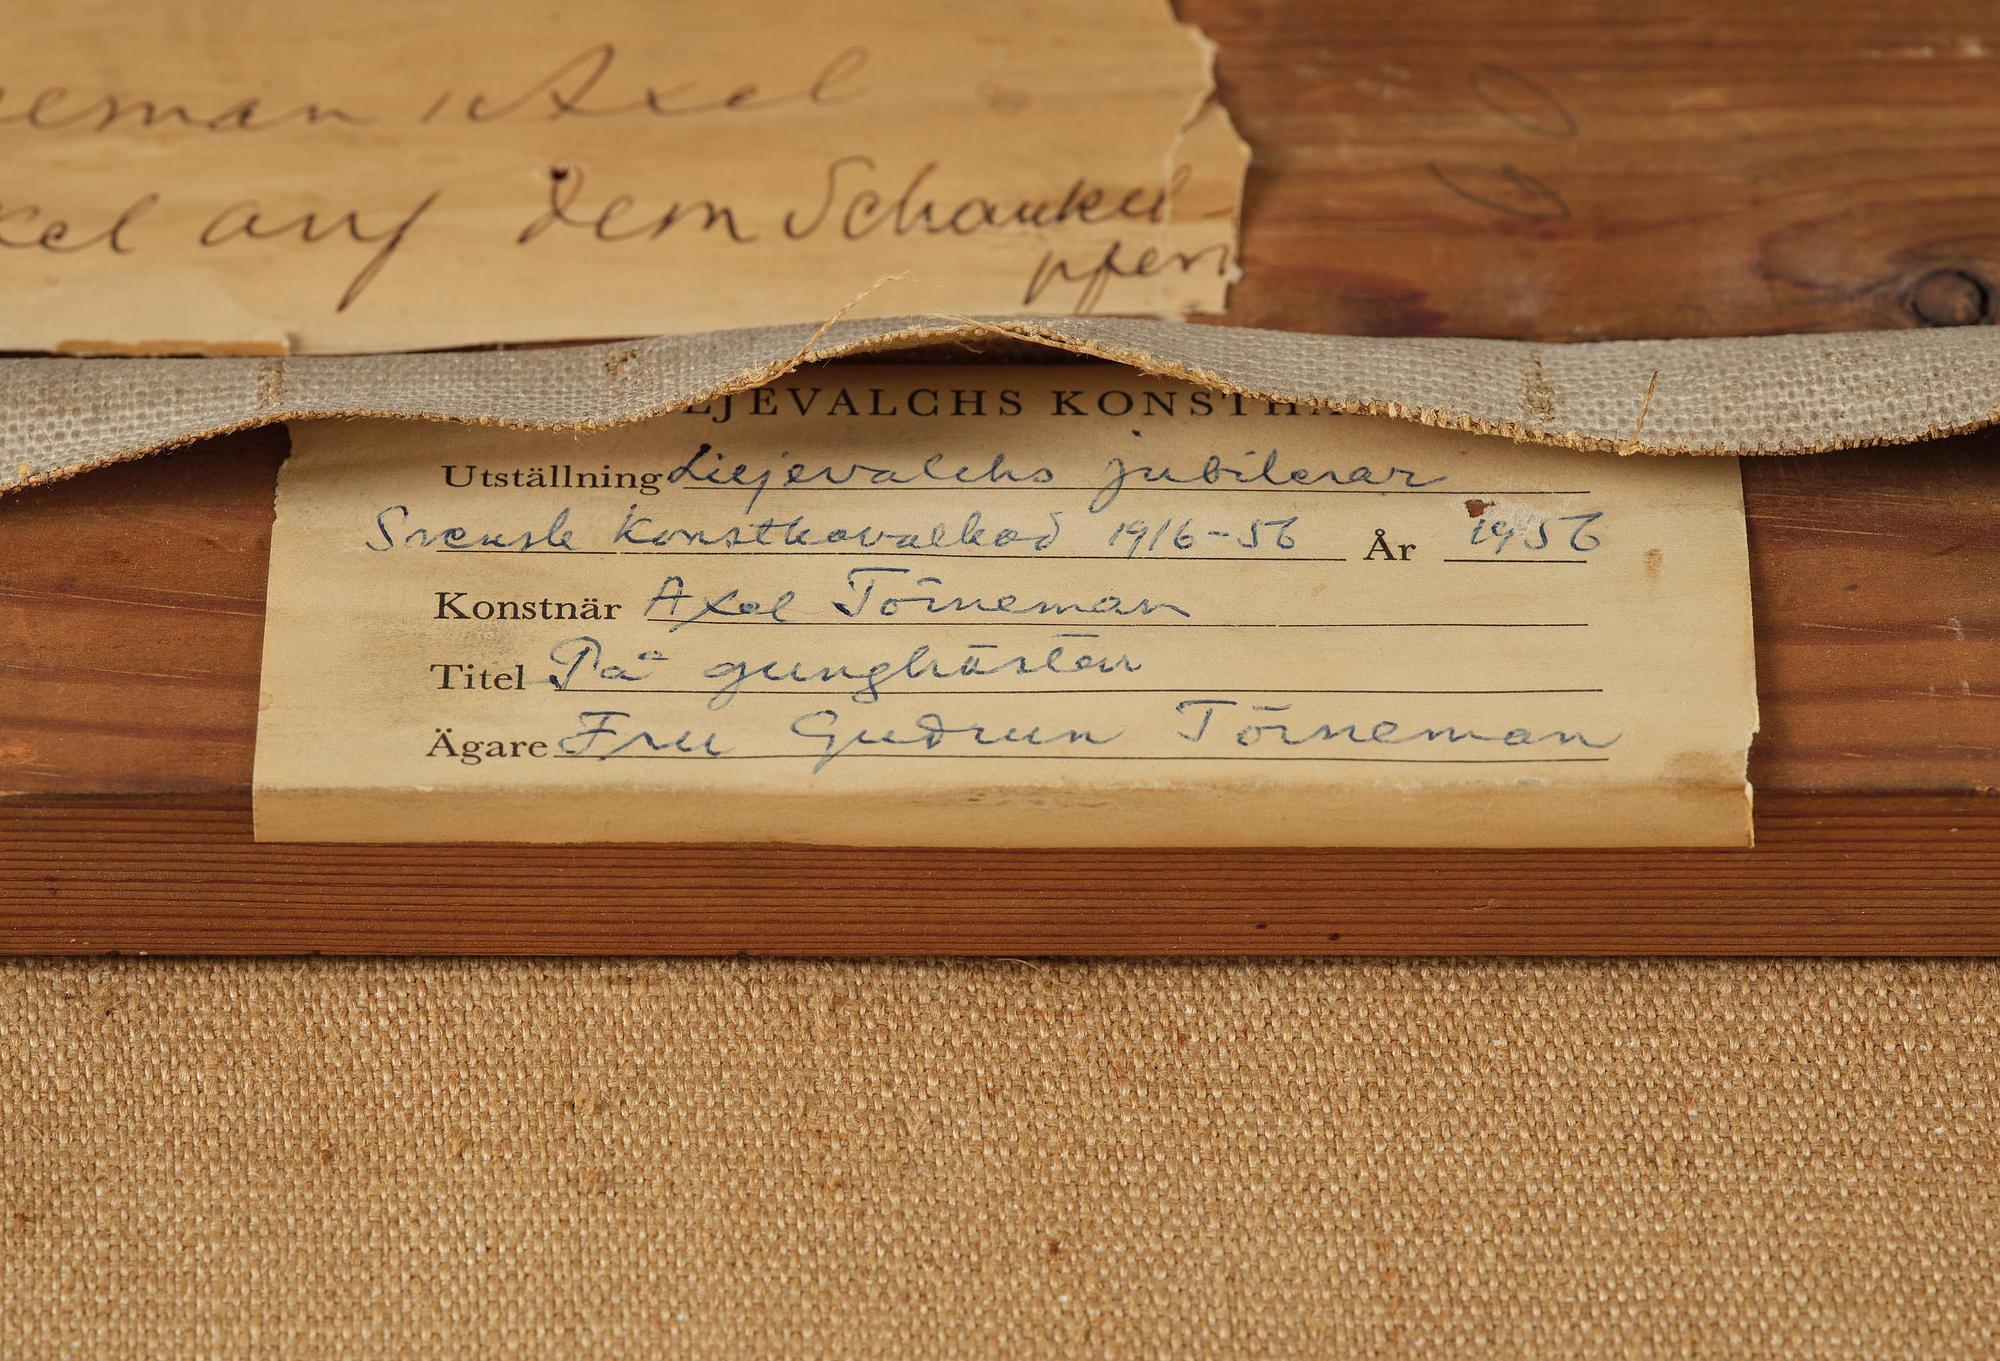 eman, Axel
xel auf dem Schaukel-
pfer
LJEVALCHS KONSTHA
Utställning Liljevalchs jubilerar
Svensk Konstkavalkad 1916-56 År 1956
Konstnär Axel Törneman
Titel På gunghästen
Ägare Fru Gudrun Törneman